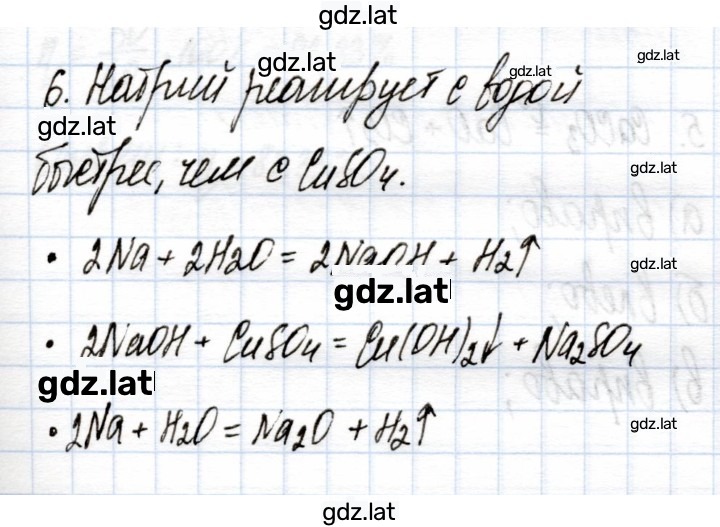 gdz.lat
gdz.lat
gdz.lat
gdz.lat
6. Натрий реагирует с водой
gdz.lat
быстрее, чем с CuSO₄.
gdz.lat
· 2Na + 2H₂O = 2NaOH + H₂↑
gdz.lat
gdz.lat
· 2NaOH + CuSO₄ = Cu(OH)₂↓ + Na₂SO₄
gdz.lat
· 2Na + H₂O = Na₂O + H₂↑
gdz.lat
gdz.lat